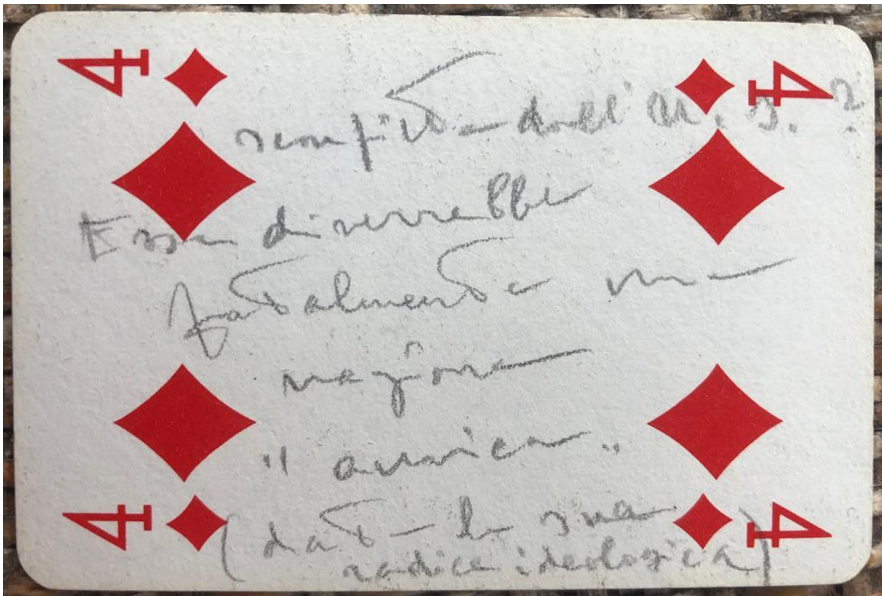 4 4
sconfitta dall'U. S. ?
Essa diverrebbe
fatalmente una
nazione
"amica"
(data la sua
radice ideologica)
4 4